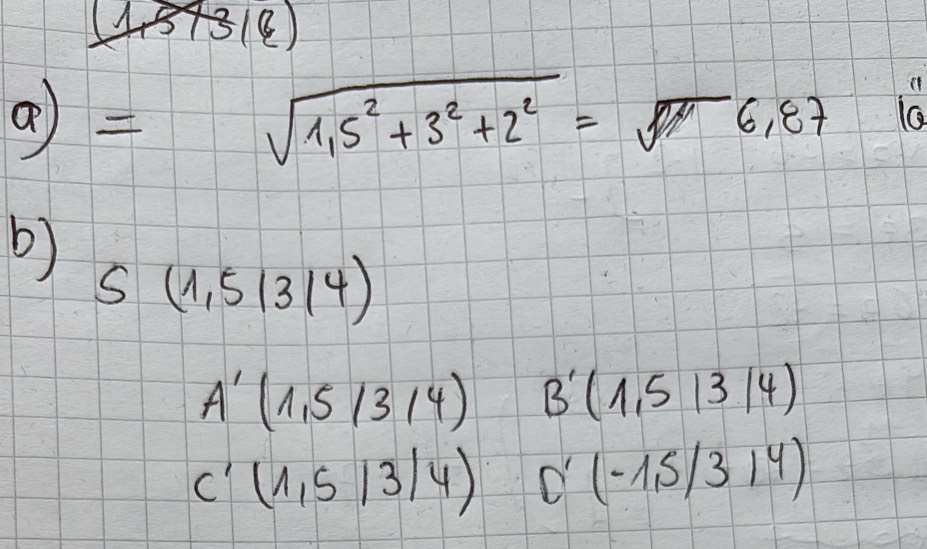 (1,5/3/2)
a) = √1,5² + 3² + 2² = √ 6,87
b)
S (1,5/3/4)
A' (1,5/3/4) B' (1,5/3/4)
C' (1,5/3/4) D' (-1,5/3/4)